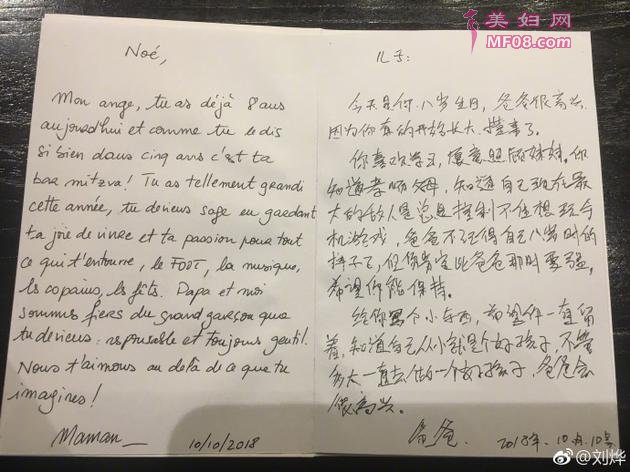 Noé,
Mon ange, tu as déjà 8 ans
aujourd'hui et comme tu le dis
si bien dans cinq ans c'est ta
bar mitzva! Tu as tellement grandi
cette année, tu deviens sage en gardant
ta joie de vivre et ta passion pour tout
ce qui t'entoure, le FOOT, la musique,
les copains, les fêtes. Papa et moi
sommes fiers du grand garçon que
tu deviens: responsable et toujours gentil.
Nous t'aimons au delà de ce que tu
imagines!
Maman
10/10/2018
儿子:
今天是你八岁生日,爸爸很高兴,
因为你真的开始长大,懂事了。
你喜欢学习,愿意照顾妹妹。你
知道孝顺父母,知道自己现在最
大的敌人是总是控制不住想玩手
机游戏,爸爸不记得自己八岁时的
样子了,但你肯定比爸爸那时要强,
希望你能保持。
给你写个小东西,希望你一直留
着,知道自己从小就是个好孩子,不管
多大一直去做一个好孩子,爸爸会
很高兴。
爸爸
2018年.10月.10号
美妇网
MF08.com
@刘烨